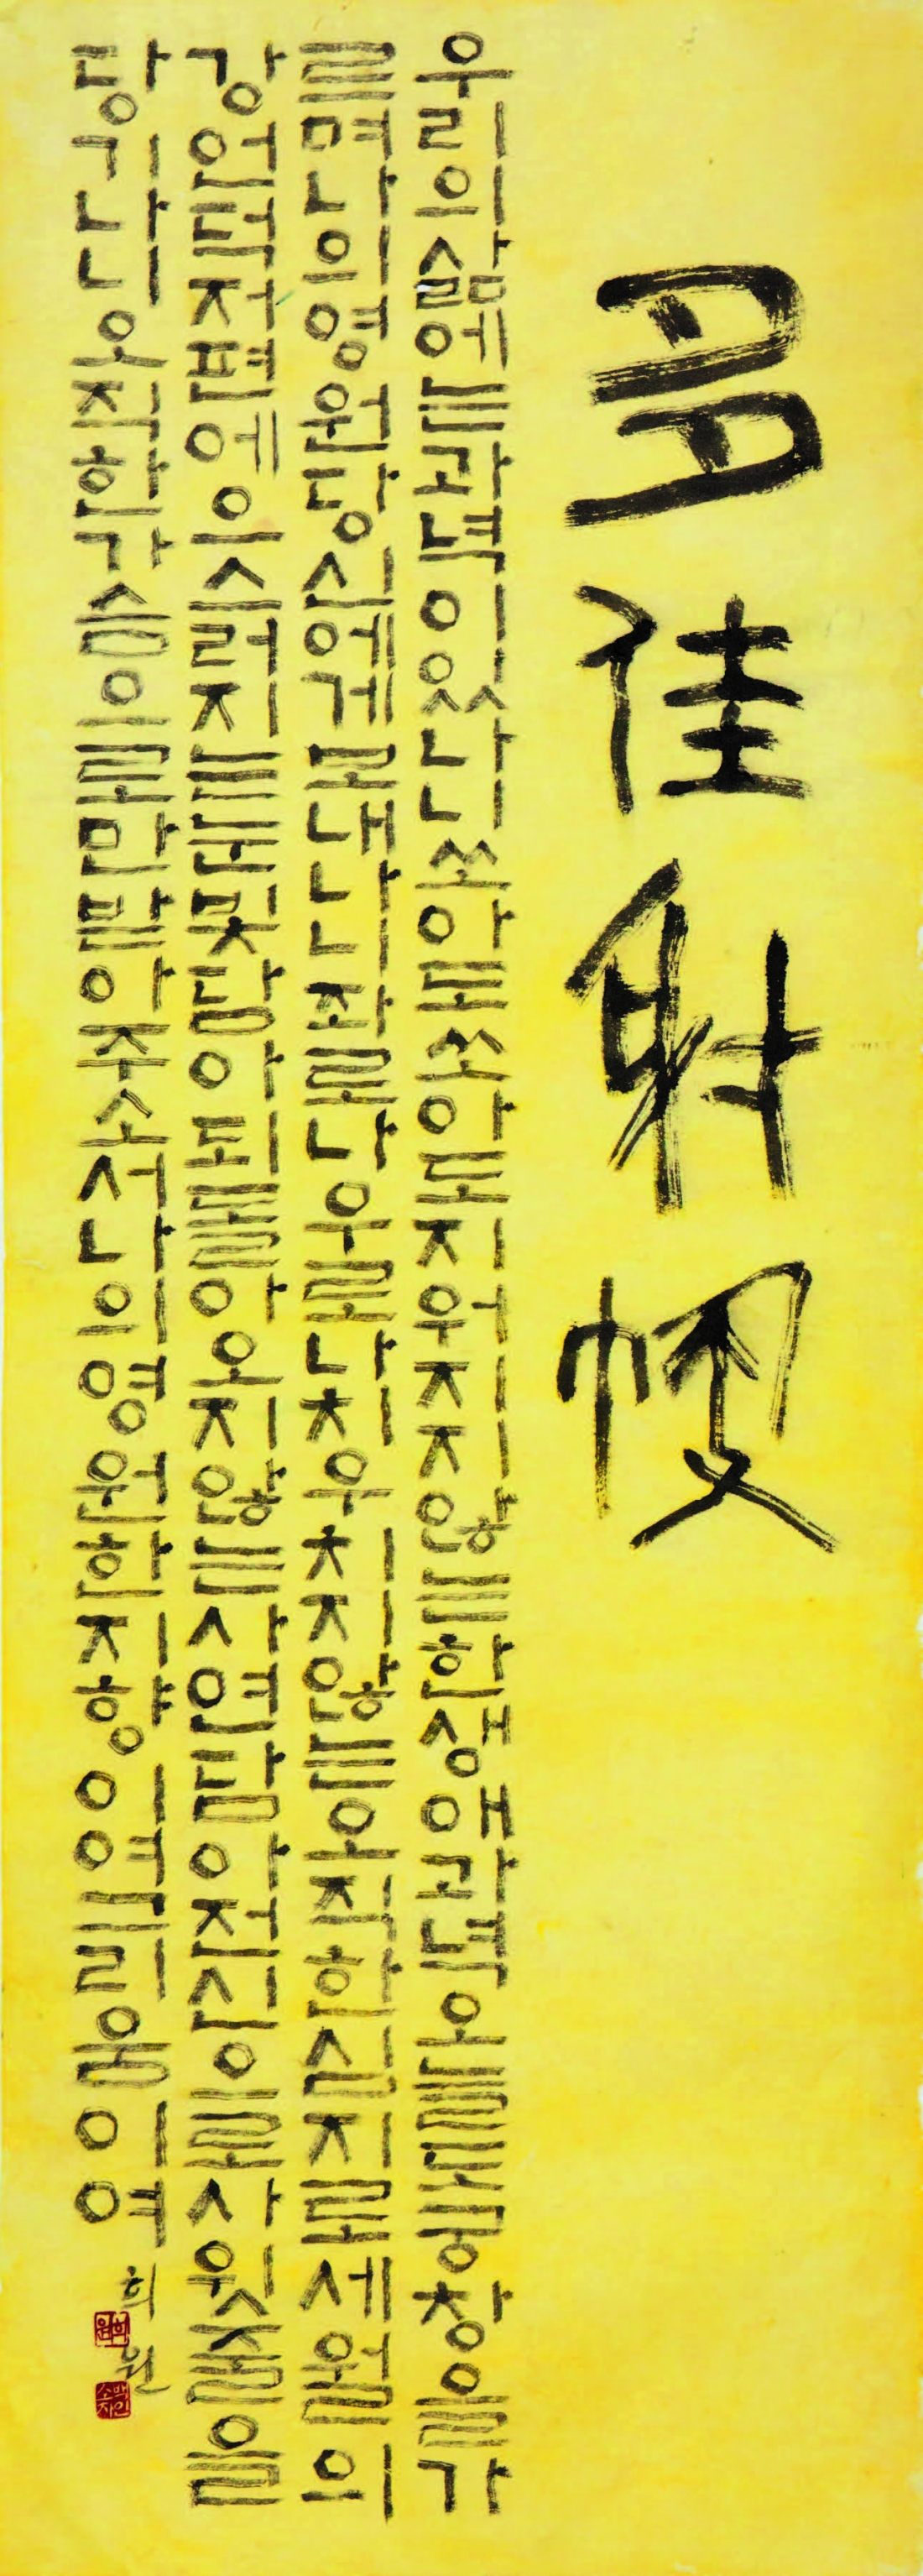 多佳射
우리의삶에는과녁이있나니쏘아도쏘아도지워지지않는한생애과녁오늘도궁창을가
르며나의영원당신에게로내나니좌로나우로나치우치지않는오직한심지로세월의
강언덕저편에으스러지는눈빛담아되돌아오지않는사연담아전신으로사윗줄을
당기나니오직한가슴으로만받아주소서나의영원한지향이여그리움이여
희원
희원